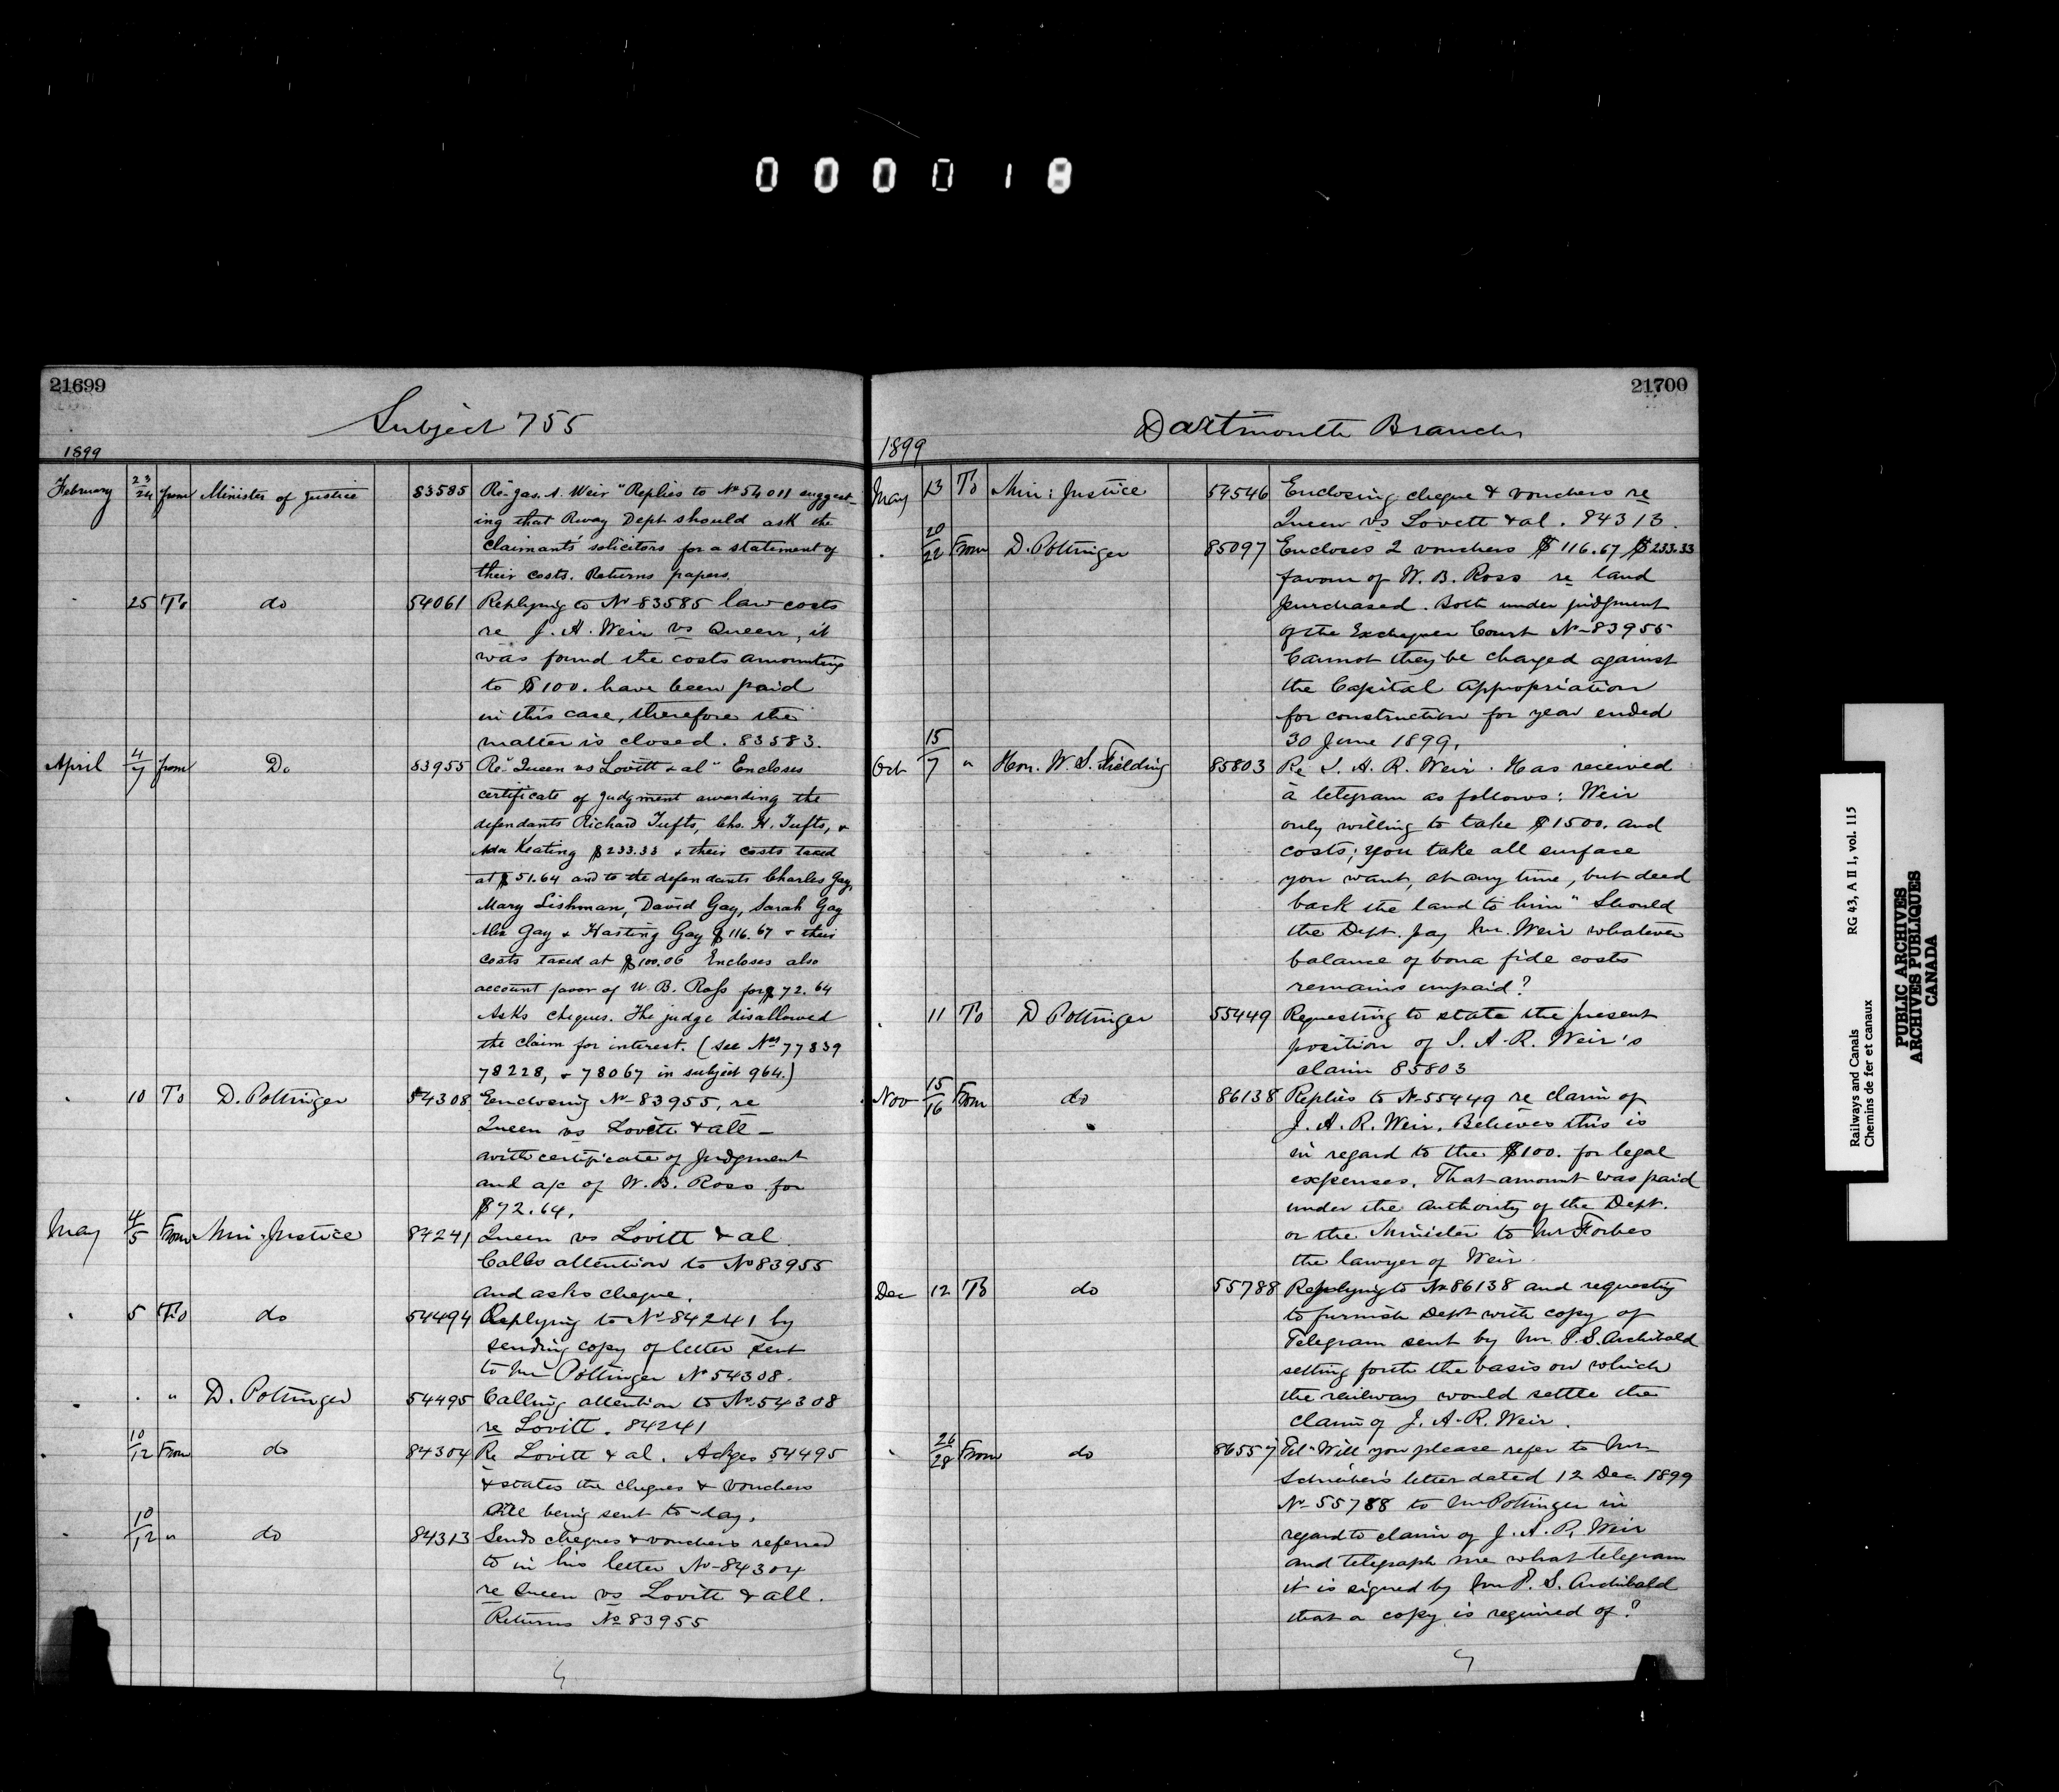 000018
21699
Subject 755
1899
February 23/24 from Minister of Justice 83585 Re "Jas. A. Weir" Replies to No 54011 suggest-
ing that Rway Dept should ask the
claimants' solicitors for a statement of
their costs. Returns papers.
" 25 To do 54061 Replying to No 83585 law costs
re J. A. Weir vs Queen, it
was found the costs amounting
to $100. have been paid
in this case, therefore the
matter is closed. 83583.
April 4/7 from Do 83955 Re "Queen vs Lovitt & al" Encloses
certificate of judgment awarding the
defendants Richard Tufts, Chs. H. Tufts, &
Ada Keating $233.33 & their costs taxed
at $51.64 and to the defendants Charles Gay,
Mary Lishman, David Gay, Sarah Gay
Gay & Hasting Gay $116.67 & their
costs taxed at $100.06 Encloses also
account favor of W. B. Ross for $72.64
Asks cheques. The judge disallowed
the claim for interest. (see Nos 77839
78228, & 78067 in subject 964.)
" 10 To D. Pottinger 54308 Enclosing No 83955, re
Queen vs Lovitt & all -
with certificate of Judgment
and a/c of W. B. Ross for
$72.64.
May 4/5 From Min: Justice 84241 Queen vs Lovitt & al.
Calls attention to No 83955
and asks cheque.
" 5 To do 54494 Replying to No 84241 by
sending copy of letter sent
to Mr Pottinger No 54308.
" . " D. Pottinger 54495 Calling attention to No 54308
re Lovitt. 84241
" 10/12 From do 84304 Re Lovitt & al. Ackges 54495
& states the cheques & vouchers
are being sent to-day.
" 10/12 " do 84313 Sends cheques & vouchers referred
to in his letter No 84304
re Queen vs Lovitt & all.
Returns No 83955
21700
Dartmouth Branch
1899
May 13 To Min: Justice 54546 Enclosing cheque & vouchers re
Queen vs Lovett & al. 84313.
" 20/22 From D. Pottinger 85097 Encloses 2 vouchers $116.67 $233.33
favour of W. B. Ross re land
purchased. Both under judgment
of the Exchequer Court No 83955
Cannot they be charged against
the Capital Appropriation
for construction for year ended
30 June 1899.
Oct 15/7 " Hon. W. S. Fielding 85803 Re J. A. R. Weir. Has received
a telegram as follows: Weir
only willing to take $1500. and
costs; you take all surface
you want, at any time, but deed
back the land to him" Should
the Dept. pay Mr. Weir whatever
balance of bona fide costs
remains unpaid?
" 11 To D Pottinger 55449 Requesting to state the present
position of J. A. R. Weir's
claim 85803
Nov 15/16 From do 86138 Replies to No 55449 re claim of
J. A. R. Weir. Believes this is
in regard to the $100. for legal
expenses. That amount was paid
under the authority of the Dept.
or the Minister to Mr Forbes
the lawyer of Weir.
Dec 12 To do 55788 Replying to No 86138 and requesting
to furnish Dept with copy of
Telegram sent by Mr. P. S. Archibald
setting forth the basis on which
the railway would settle the
claim of J. A. R. Weir.
" 26/28 From do 86557 Tel "Will you please refer to Mr
Schreiber's letter dated 12 Dec 1899
No 55788 to Mr Pottinger in
regard to claim of J. A. R. Weir
and telegraph me what telegram
it is signed by Mr P. S. Archibald
that a copy is required of?
Railways and Canals RG 43, A II 1, vol. 115
Chemins de fer et canaux
PUBLIC ARCHIVES
ARCHIVES PUBLIQUES
CANADA